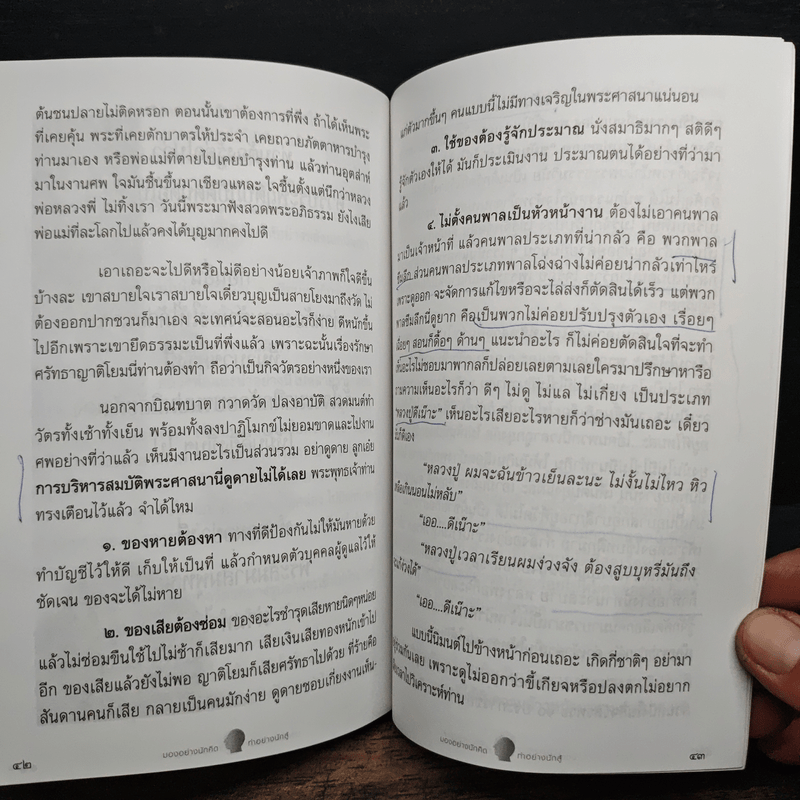 ต้นชนปลายไม่ติดหรอก ตอนนั้นเขาต้องการที่พึ่ง ถ้าได้เห็นพระ
ที่เคยคุ้น พระที่เคยตักบาตรให้ประจำ เคยถวายภัตตาหารบำรุง
ท่านมาเอง หรือพ่อแม่ที่ตายไปเคยบำรุงท่าน แล้วท่านอุตส่าห์
มาในงานศพ ใจมันชื้นขึ้นมาเชียวแหละ ใจชื้นตั้งแต่นึกว่าหลวง
พ่อหลวงพี่ ไม่ทิ้งเรา วันนี้พระมาฟังสวดพระอภิธรรม ยังไงเสีย
พ่อแม่ที่ละโลกไปแล้วคงได้บุญมากคงไปดี
เอาเถอะจะไปดีหรือไม่ดีอย่างน้อยเจ้าภาพก็ใจดีขึ้น
บ้างละ เขาสบายใจเราสบายใจเดี๋ยวบุญเป็นสายโยงมาถึงวัด ไม่
ต้องออกปากชวนก็มาเอง จะเทศน์จะสอนอะไรก็ง่าย ดีหนักขึ้น
ไปอีกเพราะเขายึดธรรมะเป็นที่พึ่งแล้ว เพราะฉะนั้นเรื่องรักษา
ศรัทธาญาติโยมนี่ท่านต้องทำ ถือว่าเป็นกิจวัตรอย่างหนึ่งของเรา
นอกจากบิณฑบาต กวาดวัด ปลงอาบัติ สวดมนต์ทำ
วัตรทั้งเช้าทั้งเย็น พร้อมทั้งลงปาฏิโมกข์ไม่ยอมขาดและไปงาน
ศพอย่างที่ว่าแล้ว เห็นมีงานอะไรเป็นส่วนรวม อย่าดูดาย ลูกเอ๋ย
การบริหารสมบัติพระศาสนานี่ดูดายไม่ได้เลย พระพุทธเจ้าท่าน
ทรงเตือนไว้แล้ว จำได้ไหม
๑. ของหายต้องหา ทางที่ดีป้องกันไม่ให้มันหายด้วย
ทำบัญชีไว้ให้ดี เก็บให้เป็นที่ แล้วกำหนดตัวบุคคลผู้ดูแลไว้ให้
ชัดเจน ของจะได้ไม่หาย
๒. ของเสียต้องซ่อม ของอะไรชำรุดเสียหายนิดๆหน่อย
แล้วไม่ซ่อมขืนใช้ไปไม่ช้าก็เสียมาก เสียเงินเสียทองหนักเข้าไป
อีก ของเสียแล้วยังไม่พอ ญาติโยมก็เสียศรัทธาไปด้วย ที่ร้ายคือ
สันดานคนก็เสีย กลายเป็นคนมักง่าย ดูดายชอบเกี่ยงงานเห็น-
มองอย่างนักคิด ทำอย่างนักสู้
๔๒
แก่ตัวมากขึ้นๆ คนแบบนี้ไม่มีทางเจริญในพระศาสนาแน่นอน
๓. ใช้ของต้องรู้จักประมาณ นั่งสมาธิมากๆ สติดีๆ
รู้จักตัวเองให้ได้ มันก็ประเมินงาน ประมาณตนได้อย่างที่ว่ามา
แล้ว
๔. ไม่ตั้งคนพาลเป็นหัวหน้างาน ต้องไม่เอาคนพาล
มาเป็นเจ้าหน้าที่ แล้วคนพาลประเภทที่น่ากลัว คือ พวกพาล
ซึมลึก ส่วนคนพาลประเภทพาลโฉ่งฉ่างไม่ค่อยน่ากลัวเท่าไหร่
เพราะดูออก จะจัดการแก้ไขหรือจะไล่ส่งก็ตัดสินได้เร็ว แต่พวก
พาลซึมลึกนี่ดูยาก คือเป็นพวกไม่ค่อยปรับปรุงตัวเอง เรื่อยๆ
เฉื่อยๆ สอนก็ดื้อๆ ด้านๆ แนะนำอะไร ก็ไม่ค่อยตัดสินใจที่จะทำ
อะไรไม่ชอบมาพากลก็ปล่อยเลยตามเลยใครมาปรึกษาหารือ
ถามความเห็นอะไรก็ว่า ดีๆ ไม่ดู ไม่แล ไม่เกี่ยง เป็นประเภท
“หลวงปู่ดีเน๊าะ” เห็นอะไรเสียอะไรหายก็ว่าช่างมันเถอะ เดี๋ยว
ก็ดีเอง
“หลวงปู่ ผมจะฉันข้าวเย็นละนะ ไม่งั้นไม่ไหว หิว
เหลือเกินนอนไม่หลับ”
“เออ....ดีเน๊าะ”
“หลวงปู่เวลาเรียนผมง่วงจัง ต้องสูบบุหรี่มันถึง
จะแก้ง่วงได้”
“เออ....ดีเน๊าะ”
แบบนี้นิมนต์ไปข้างหน้าก่อนเถอะ เกิดกี่ชาติๆ อย่ามา
ร่วมกันเลย เพราะดูไม่ออกว่าขี้เกียจหรือปลงตกไม่อยาก
เสียเวลาไปวิเคราะห์ท่าน
มองอย่างนักคิด ทำอย่างนักสู้
๔๓